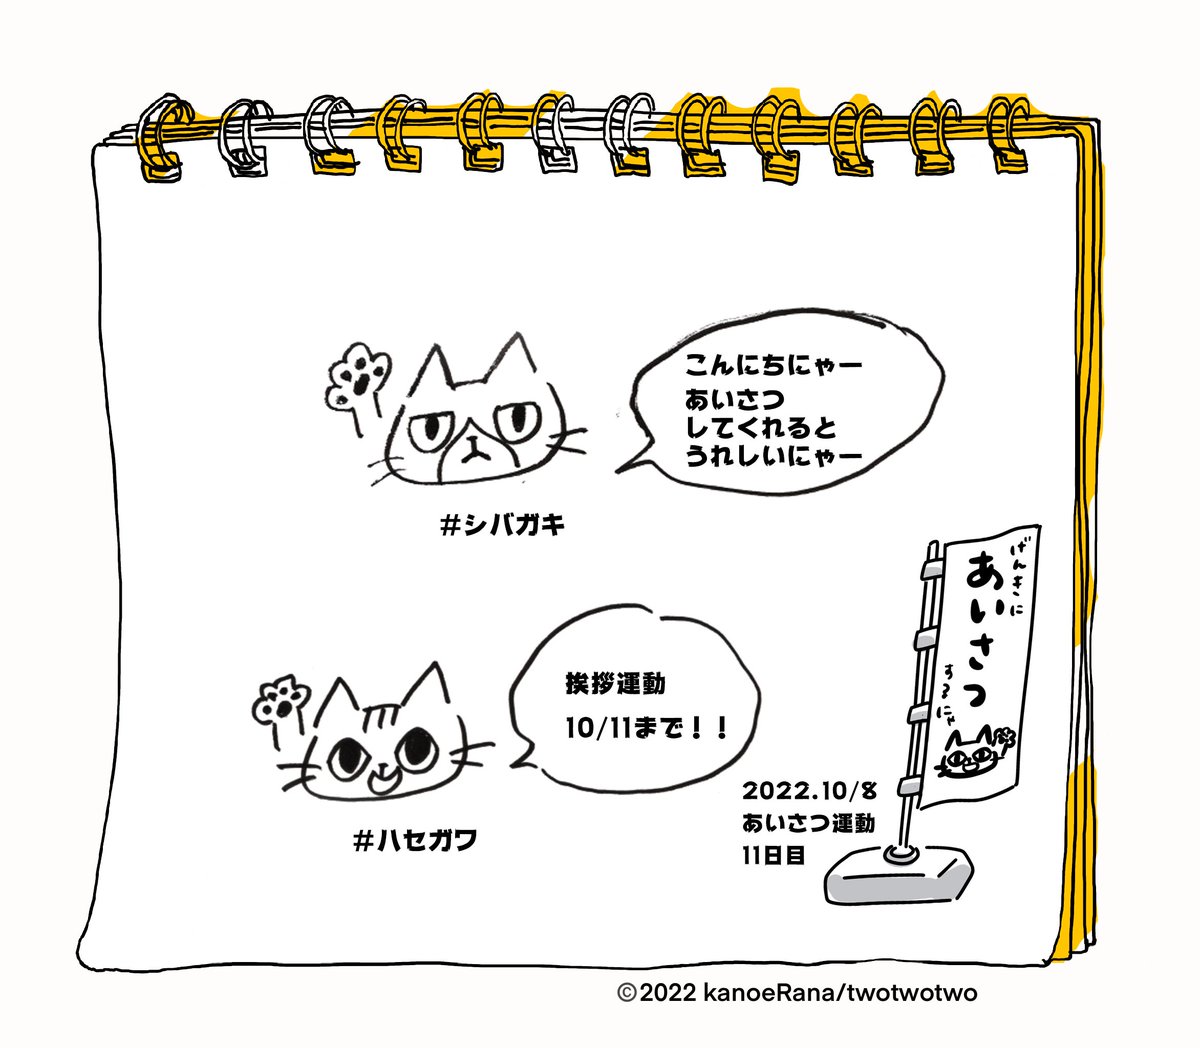 こんにちにゃー
あいさつ
してくれると
うれしいにゃー
#シバガキ
げんきに
あいさつ
するにゃ
挨拶運動
10/11まで！！
#ハセガワ
2022.10/8
あいさつ運動
11日目
©2022 kanoeRana/twotwotwo